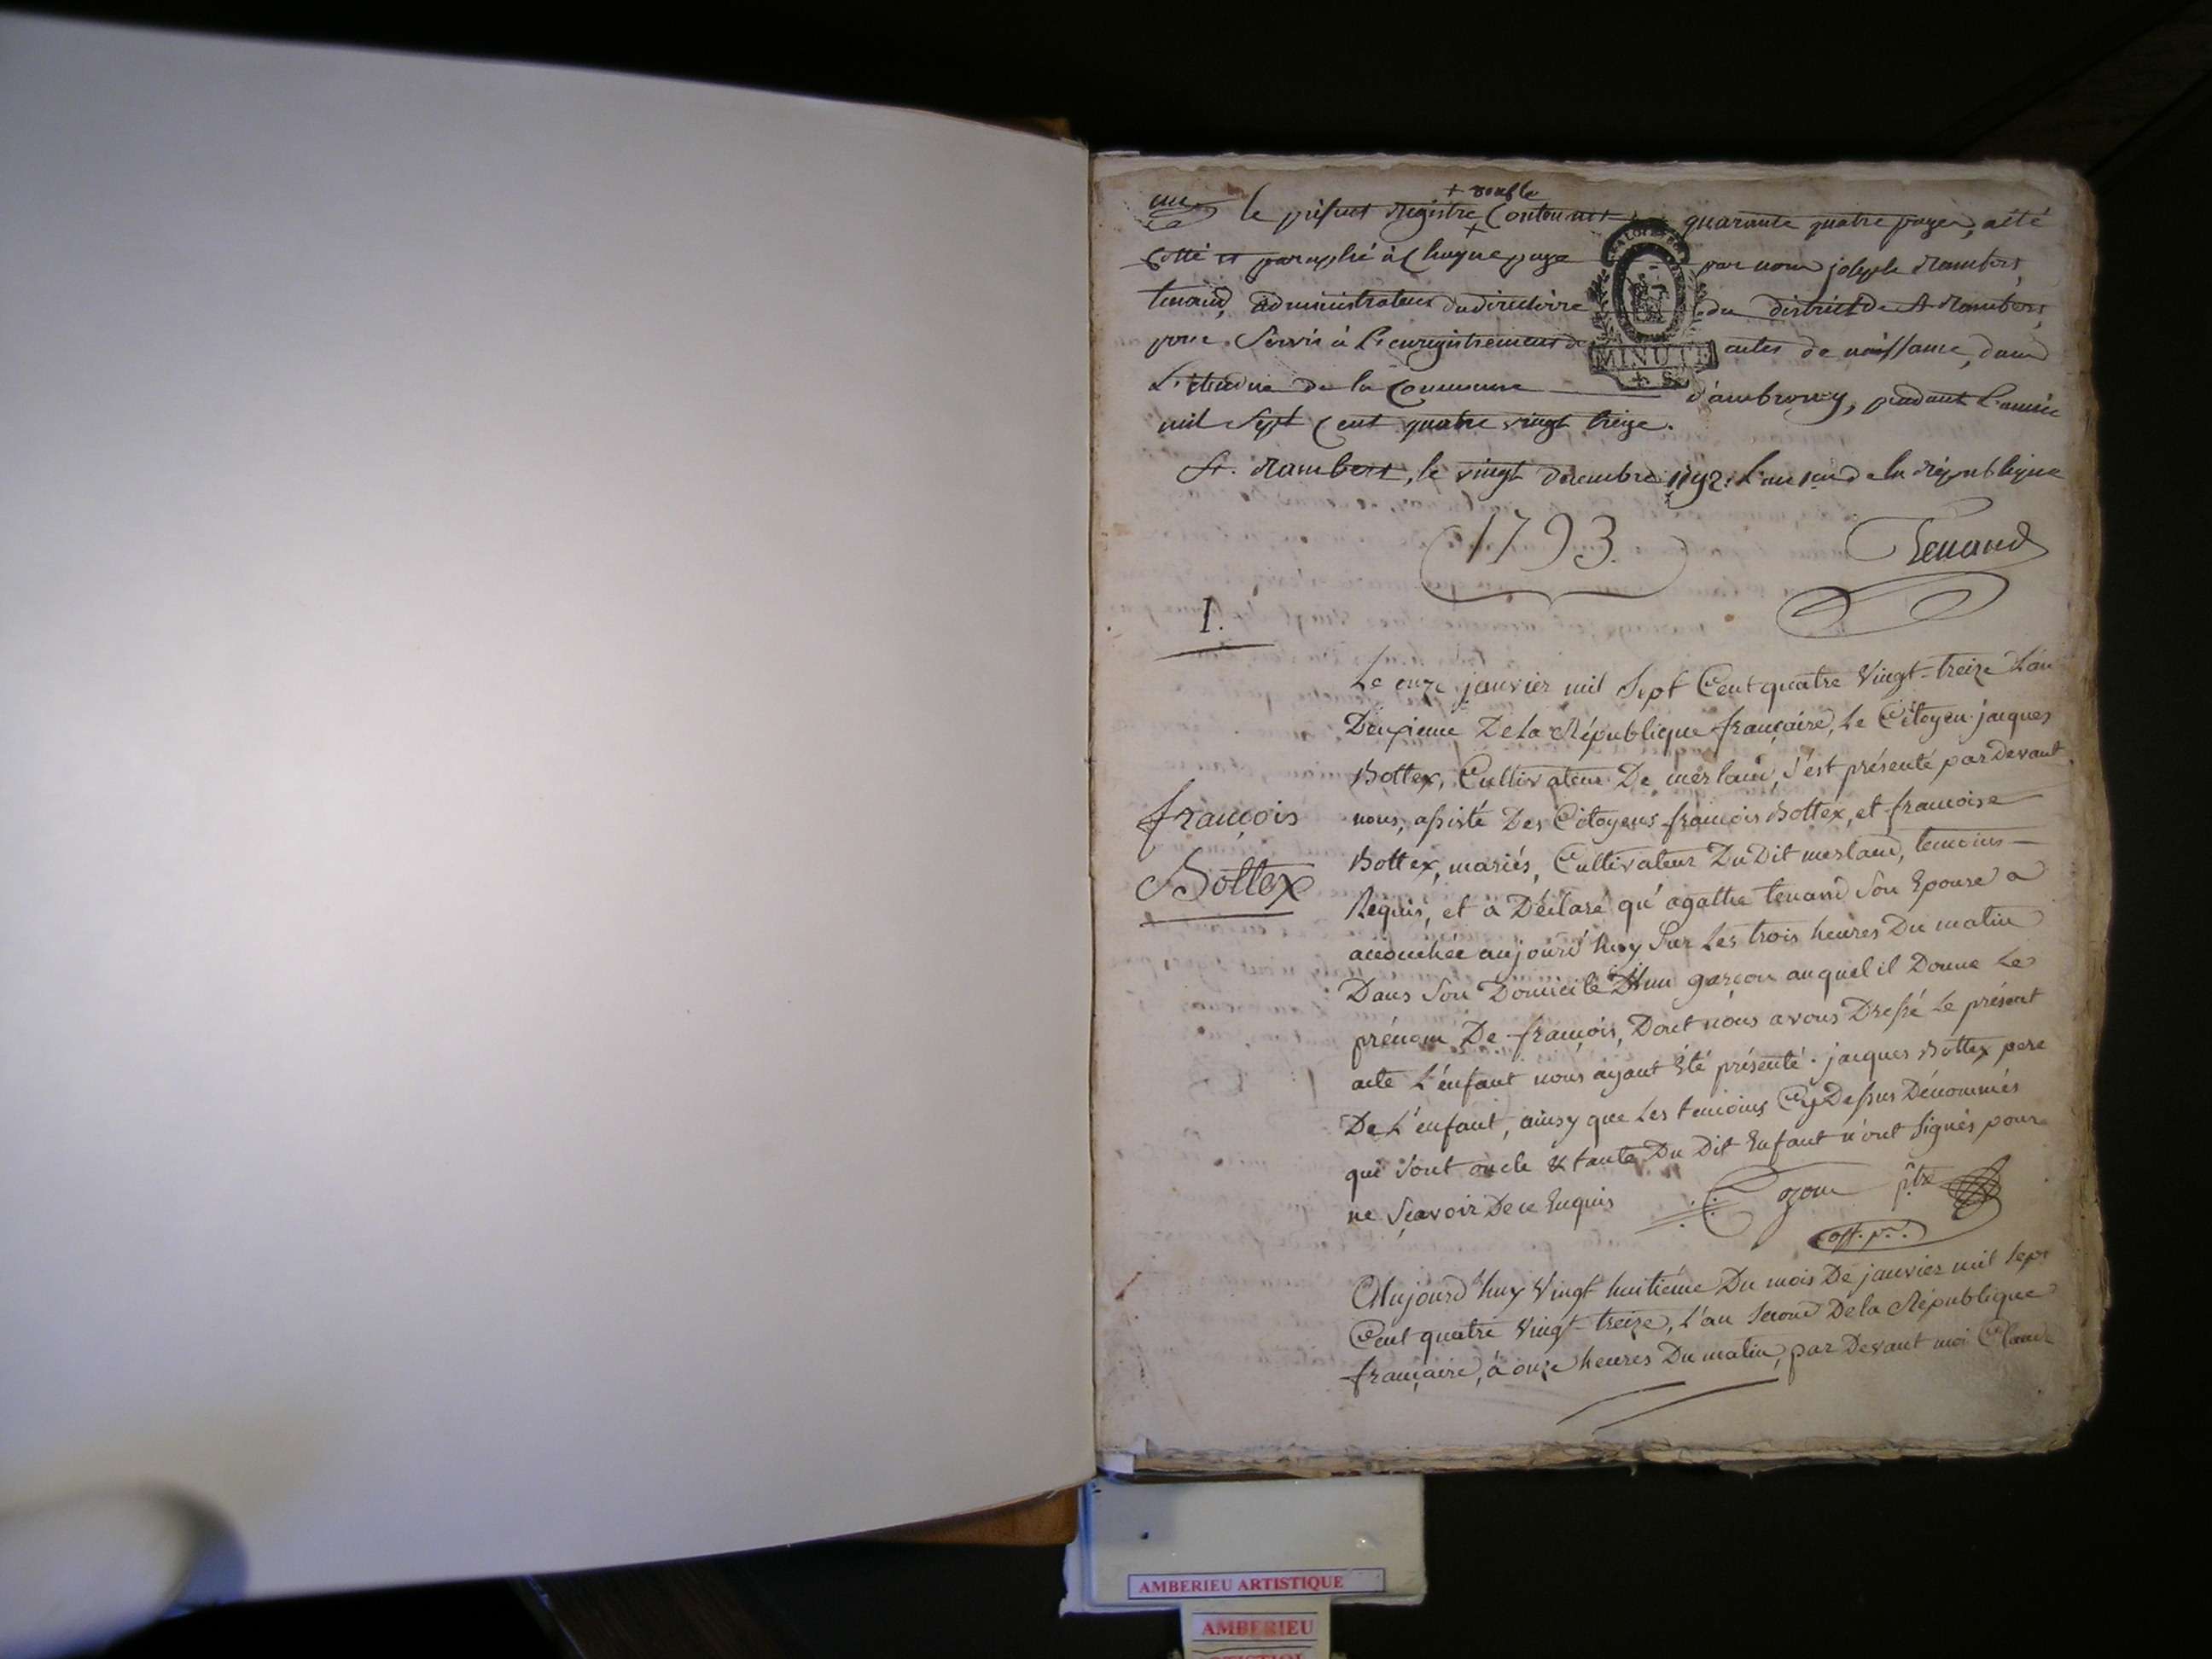 une
+ double
le présent Registre Contenant quarante quatre pages, a été
Cotté et paraphé à Chaque page par nous joseph Rambert
tenand, administrateur du directoire du district de St Rambert,
pour Servir à L'enregistrement des actes de naissance, dans
L'étendue de la Commune d'ambronay, pendant L'année
mil Sept Cent quatre vingt treize.
St. Rambert, le vingt décembre 1792. L'an 1er de la république
MINUTE
1793.
Tenand
1.
Le onze janvier mil Sept Cent quatre Vingt-treize L'an
Deuxieme De La République française, Le Citoyen jacques
Bottex, Cultivateur De merland, s'est présenté pardevant
nous, assisté Des Citoyens françois Bottex, et francoise
Bottex, mariés, Cultivateur Du Dit merland, temoins
Requis, et a Déclaré qu'agathe tenand Son Epouse a
accouchée aujourd'huy Sur Les trois heures Du matin
Dans Son Domicile D'un garçon auquel il Donne Le
prénom De françois, Dont nous avons Dressé Le présent
acte L'enfant nous ayant Eté présenté. jacques Bottex pere
De L'enfant, ainsy que Les temoins Cy Dessus Dénommés
qui Sont oncle & tante Du Dit Enfant n'ont Signés pour
ne Sçavoir De ce Enquis
françois
Bottex
Cozon ptre
off. p.
Aujourd'huy Vingt huitième Du mois De janvier mil Sept
Cent quatre Vingt-treize, L'an Second De la République
française, à onze heures Du matin, par Devant moi Claude
AMBERIEU ARTISTIQUE
AMBERIEU